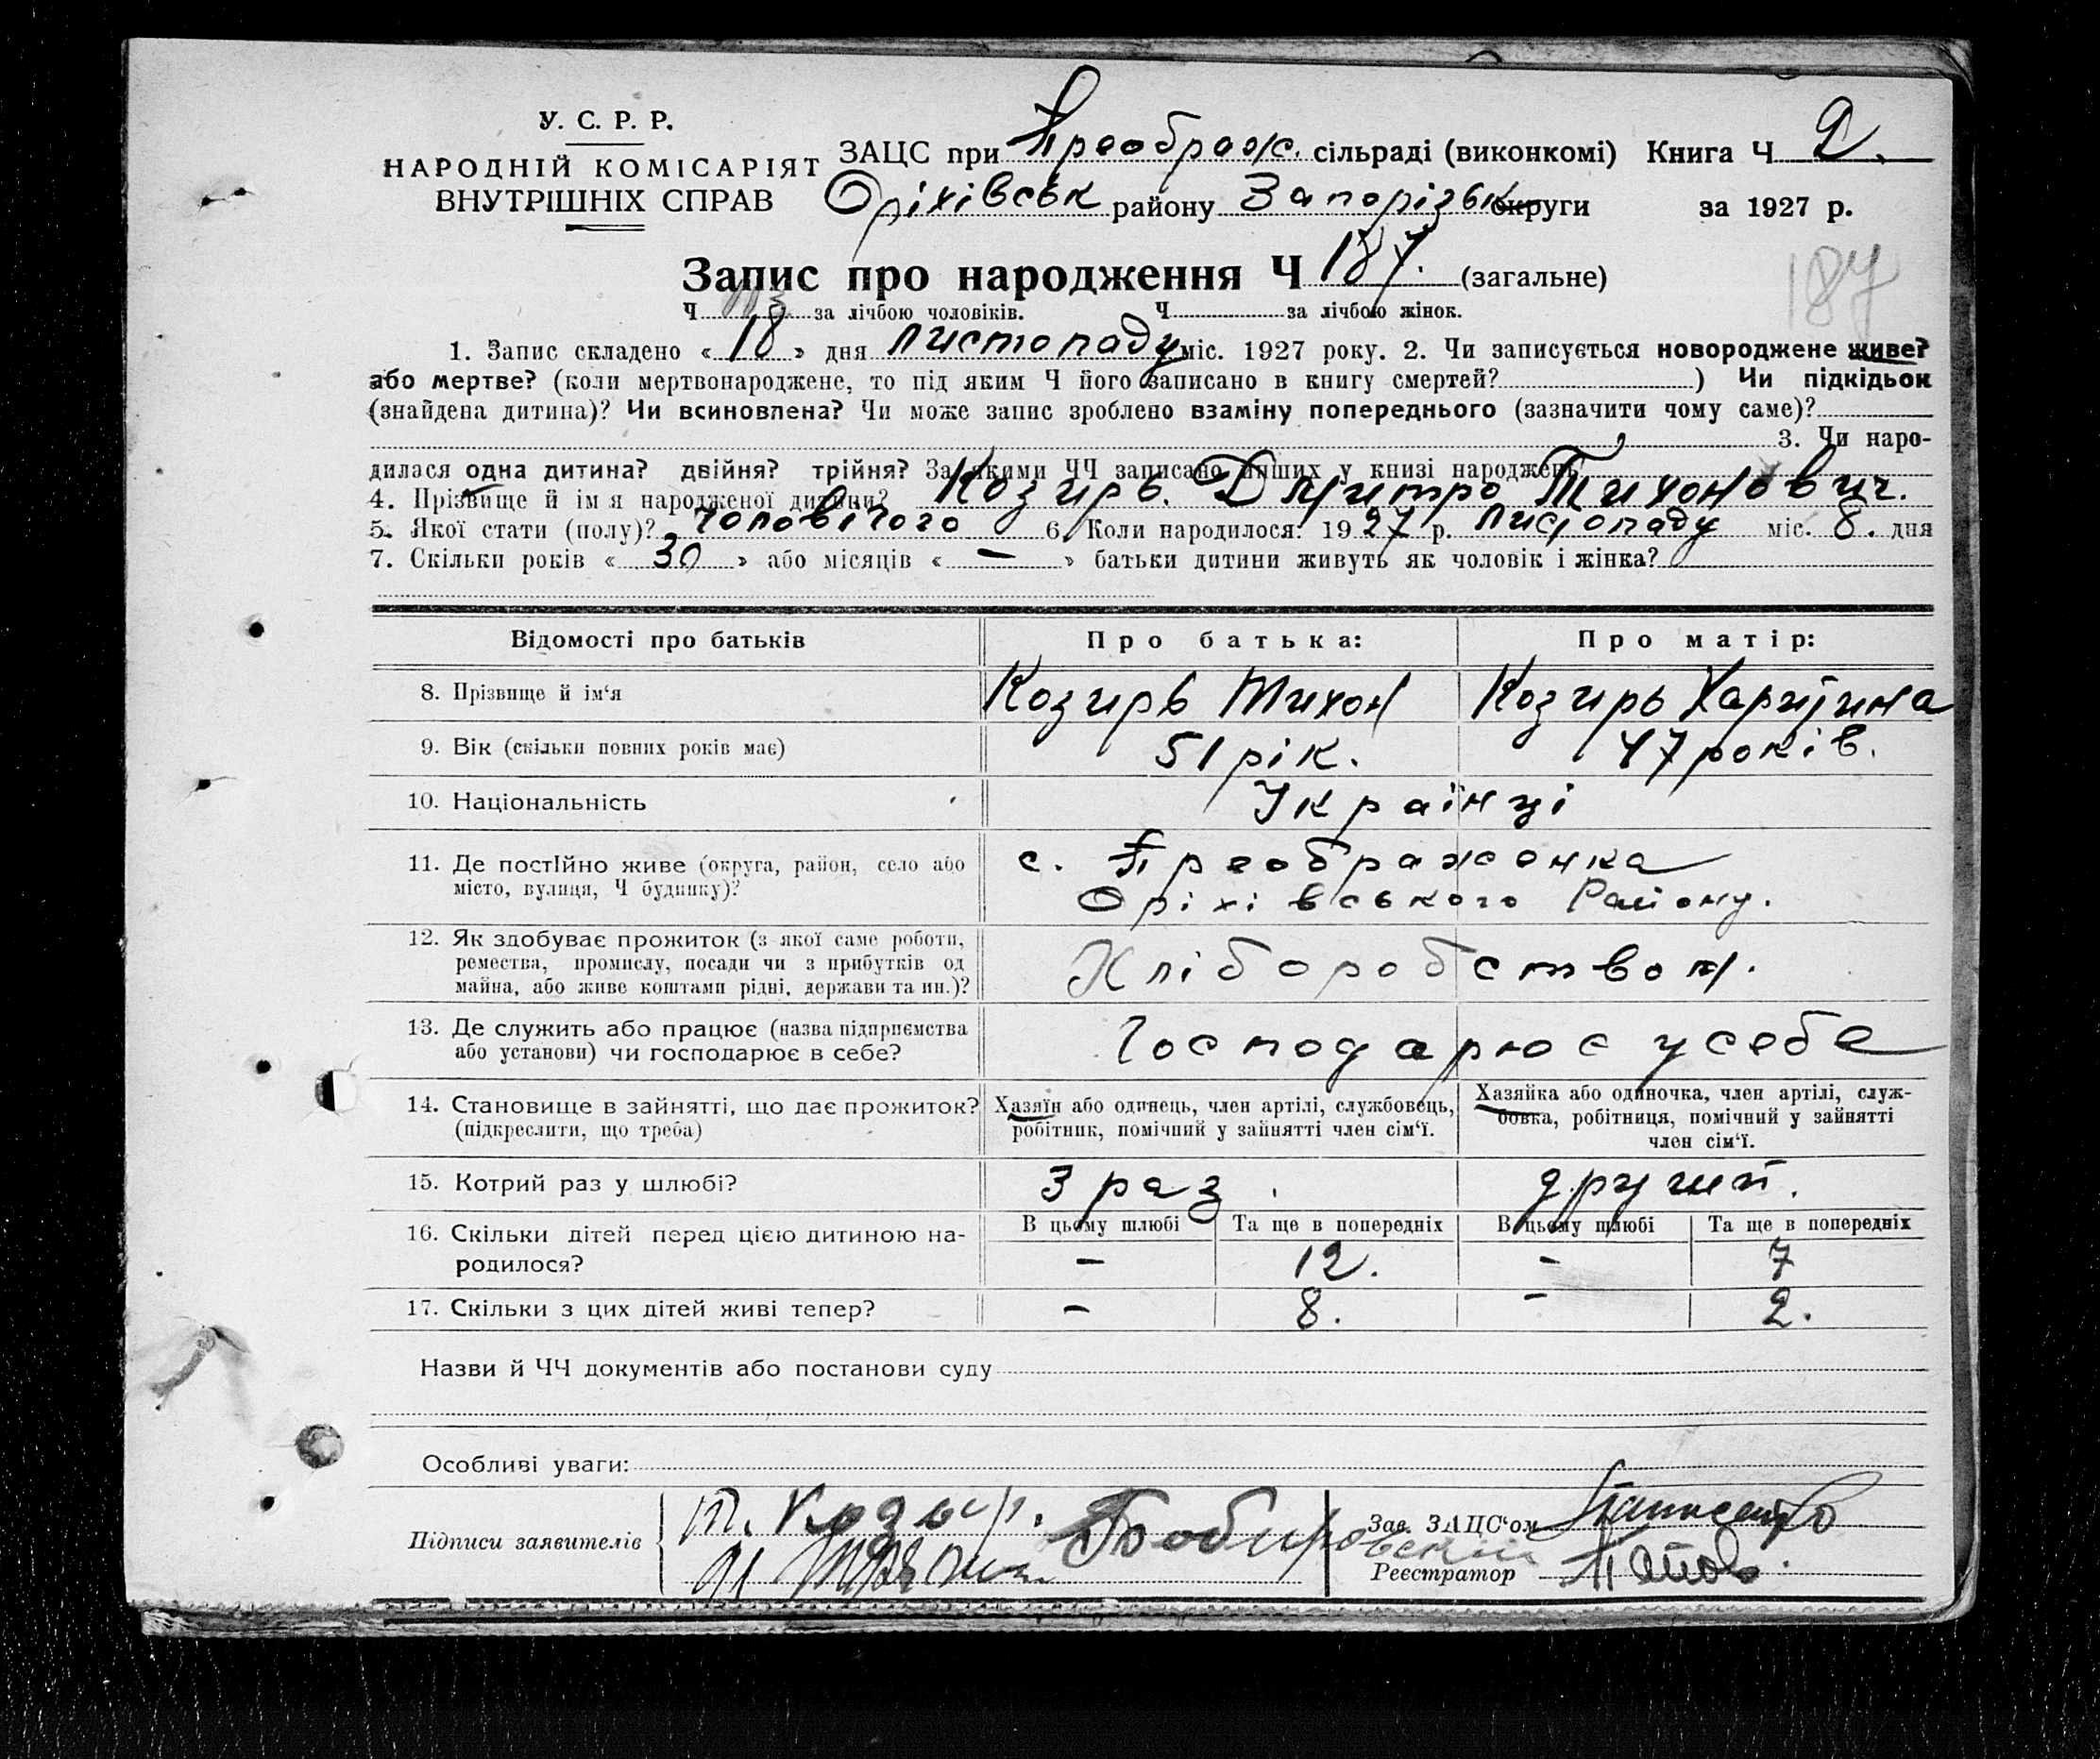 У. С. Р. Р.
НАРОДНІЙ КОМІСАРІЯТ
ВНУТРІШНІХ СПРАВ
ЗАЦС при Преображ. сільраді (виконкомі) Книга Ч 2.
Оріхівськ району Запорізьк округи за 1927 р.
Запис про народження Ч 187. (загальне)
187
Ч 113 за лічбою чоловіків. Ч за лічбою жінок.
1. Запис складено « 18 » дня листопаду міс. 1927 року. 2. Чи записується новороджене живе?
або мертве? (коли мертвонароджене, то під яким Ч його записано в книгу смертей? ) Чи підкідьок
(знайдена дитина)? Чи всиновлена? Чи може запис зроблено взаміну попереднього (зазначити чому саме)?
3. Чи наро-
дилася одна дитина? двійня? трійня? За якими ЧЧ записано инших у книзі народжень
4. Прізвище й ім я народженої дитини? Козирь. Дмитро Тихонович.
5. Якої стати (полу)? чоловічого 6. Коли народилося: 1927 р. листопаду міс. 8. дня
7. Скільки років « 30 » або місяців « — » батьки дитини живуть як чоловік і жінка?
Відомості про батьків Про батька: Про матір:
8. Прізвище й ім‘я Козирь Тихон Козирь Харитина
9. Вік (скільки повних років має) 51 рік. 47 років.
10. Національність Українці
11. Де постІйно живе (округа, район, село або с. Преображенка
місто, вулиця, Ч будинку)? Оріхівського Району.
12. Як здобуває прожиток (з якої саме роботи,
ремества, промислу, посади чи з прибутків од Хліборобством.
майна, або живе коштами рідні, держави та ин.)?
13. Де служить або працює (назва підприємства Господарює у себе
або установи) чи господарює в себе?
14. Становище в зайнятті, що дає прожиток? Хазяїн або одинець, член артілі, службовець, Хазяйка або одиночка, член артілі, служ-
(підкреслити, що треба) робітник, помічний у зайнятті член сім‘ї. бовка, робітниця, помічний у зайнятті
член сім‘ї.
15. Котрий раз у шлюбі? 3 раз. другий.
16. Скільки дітей перед цією дитиною на- В цьому шлюбі Та ще в попередніх В цьому шлюбі Та ще в попередніх
родилося? – 12. – 7
17. Скільки з цих дітей живі тепер? – 8. – 2.
Назви й ЧЧ документів або постанови суду
Особливі уваги:
Підписи заявителів Т. Козыр. Зав. ЗАЦС‘ом
Реєстратор